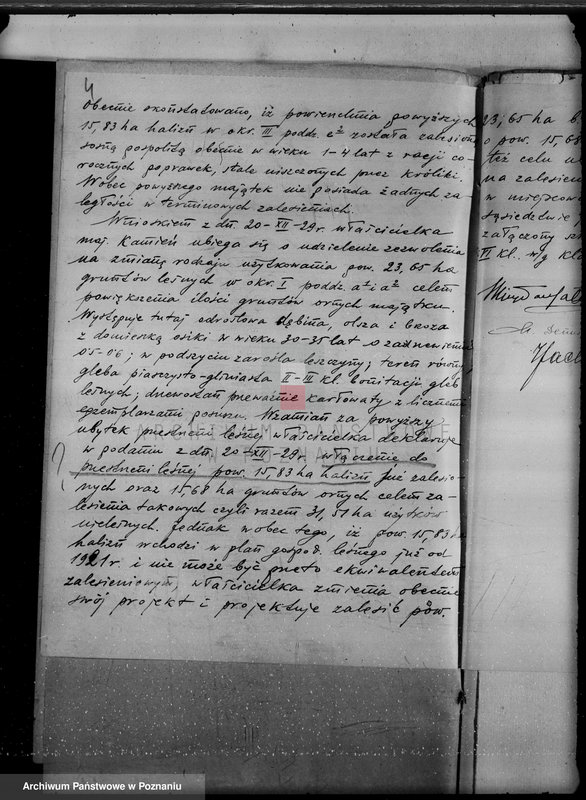 4
Obecnie skonstatowano, iż powierzchnia powyższych
15,83 ha halizn w okr. III poddz. c² została zalesiona
sosną pospolitą obecnie w wieku 1-4 lat z racji co-
rocznych poprawek, stale niszczonych przez króliki.
Wobec powyższego majątek nie posiada żadnych za-
ległości w terminowych zalesieniach.
Wnioskiem z dn. 20-XII-29r. właścicielka
maj. Kamień ubiega się o udzielenie zezwolenia
na zmianę rodzaju użytkowania pow. 23,65 ha
gruntów leśnych w okr. I poddz. a² i a³ celem
powiększenia ilości gruntów ornych majątku.
Występuje tutaj odroślowa dębina, olsza i brzoza
z domieszką osiki w wieku 30-35 lat o zadrzewieniu
05-06; w podszyciu zarośla leszczyny; teren równy,
gleba piaszczysto-gliniasta II-III kl. bonitacji gleb
leśnych; drzewostan przeważnie karłowaty z licznemi
egzemplarzami posuszu. Wzamian za powyższy
ubytek przestrzeni leśnej właścicielka deklaruje
w podaniu z dn. 20-XII-29r. włączenie do
przestrzeni leśnej pow. 15,83 ha halizn już zalesio-
nych oraz 15,68 ha gruntów ornych celem za-
lesienia takowych czyli razem 31,51 ha użytków
nieleśnych. Jednak wobec tego, iż pow. 15,83 ha
halizn wchodzi w plan gospod. leśnego już od
1921r. i nie może być przeto ekwiwalentem
zalesieniowym, właścicielka zmienia obecnie
swój projekt i projektuje zalesić pow.
23,65 ha
o pow. 15,68
też celu
na zalesien
w miejscow
sąsiedztwie
załączony
VI kl. w/g kl
ARCHIWUM PAŃSTWOWE
W POZNANIU
Archiwum Państwowe w Poznaniu